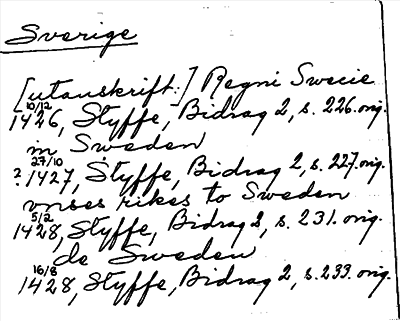 Sverige
[utanskrift:] Regni Swecie
10/12 1426, Styffe, Bidrag 2, s. 226. orig.
in Sweden
27/10 ? 1427, Styffe, Bidrag 2, s. 227. orig.
vnses rikes to Sweden
5/2 1428, Styffe, Bidrag 2, s. 231. orig.
de Sweden
16/8 1428, Styffe, Bidrag 2, s. 233. orig.